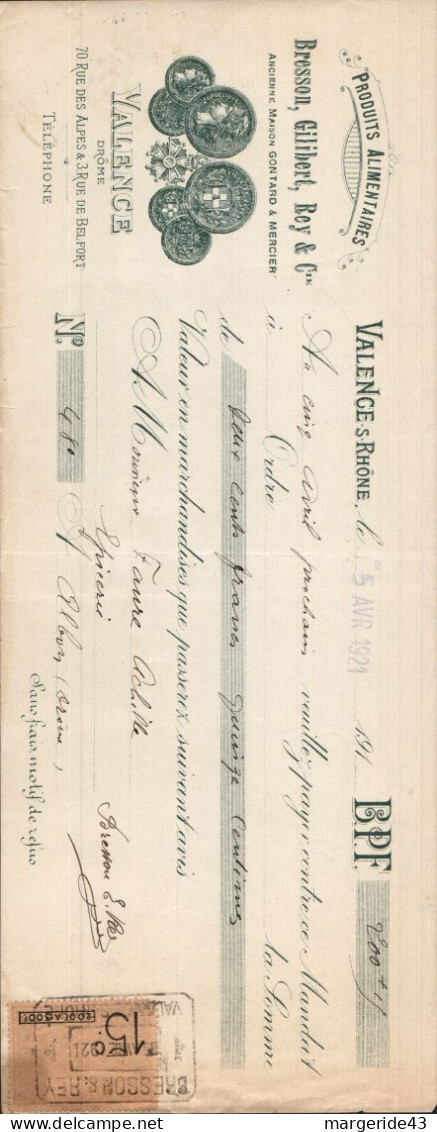 PRODUITS ALIMENTAIRES
Bresson, Gilibert, Rey & Cie
ANCIENNE MAISON GONTARD & MERCIER
VALENCE
DRÔME
70 RUE DES ALPES & 3 RUE DE BELFORT
TÉLÉPHONE
VALENCE-S-RHÔNE, le 5 AVR 1921 191 B.P.F. 200 + 15
Au cinq Avril prochain veuillez payer contre ce Mandat
à Ordre la Somme
de Deux cents francs quinze centimes
Valeur en marchandises que passerez suivant avis
A Monsieur Faure Achille
Epicerie
No. 480 A Albon (Drôme)
Sans frais, motif de refus
15 C
BRESSON & REY
delcampe.net
margeride43